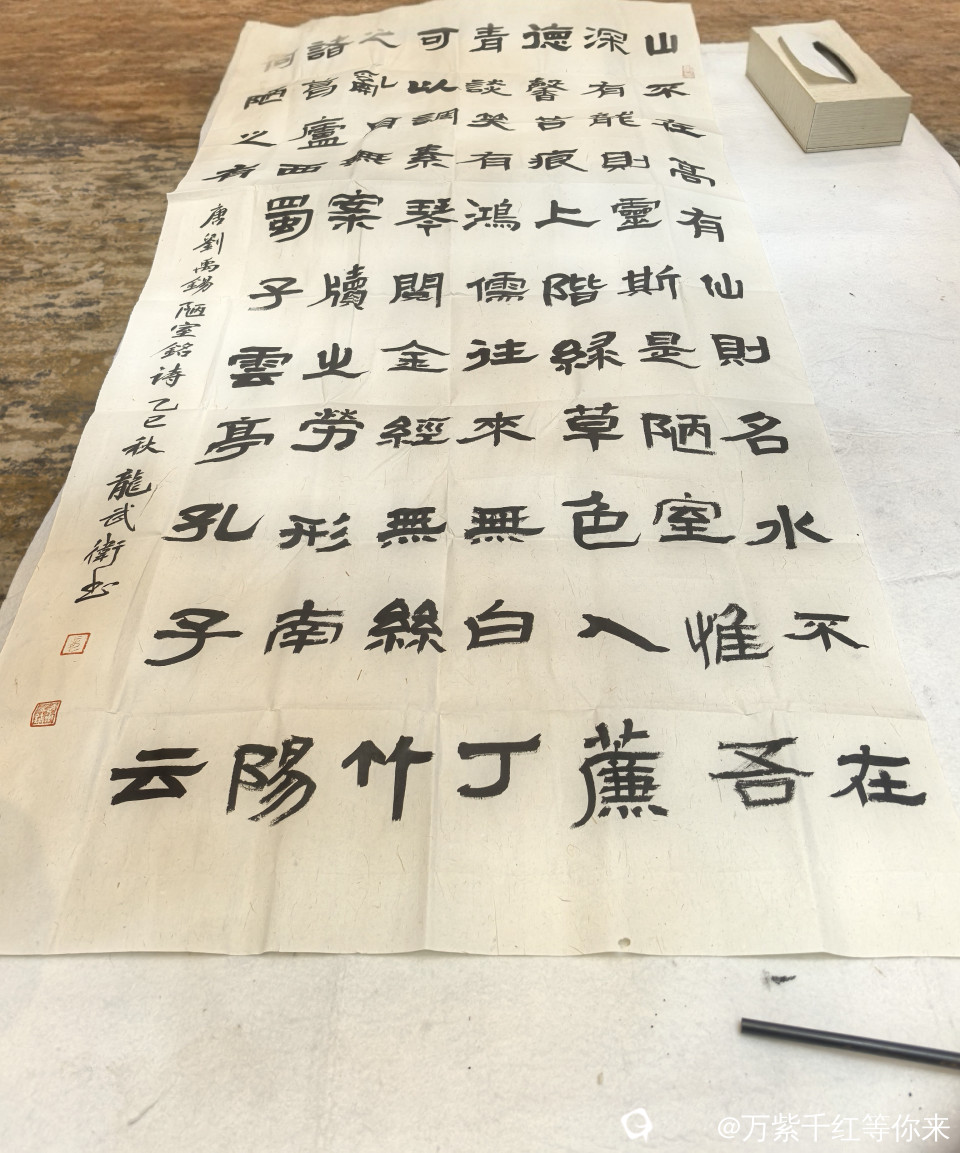 山不在高有仙則名水不在
深有能則靈斯是陋室惟吾
德馨苔痕上階緑草色入薕
青談笑有鴻儒往來無白丁
可以調素琴閱金經無絲竹
之亂耳無案牘之勞形南陽
諸葛廬西蜀子雲亭孔子云
何陋之有
唐劉禹錫陋室銘詩乙巳秋龍武衛书
@万紫千红等你来